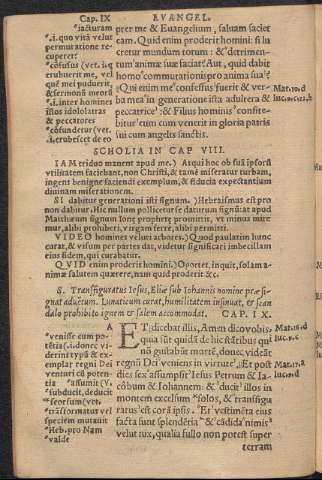 Cap. IX EVANGEL.
*iacturam
*.i. quo vitã velut
permutatione re
cuperet?
*cõfusus (vet. i.q
erubuerit me, vel
quẽ mei puduerit,
& sermonũ meorũ
*.i. inter homines
istos idololatras
& peccatores
*cõfundetur (vet.
.i. erubescet de eo
pter me & Euangelium, saluam faciet
eam. Quid enim proderit homini: si lu
cretur mundum totum: & *detrimen-
tum animæ suæ faciat? Aut, quid dabit
homo *commutationis pro anima sua?
Qui enim me *confessus fuerit & ver-
ba mea in generatione ista adultera &
peccatrice: & Filius hominis *confite-
bitur eum cum venerit in gloria patris
sui cum angelis sanctis.
Mat.10.d
SCHOLIA IN CAP VIII.
IAM triduo manent apud me.) Atqui hoc ob suã ipsorũ
vtilitatem faciebant, non Christi, & tamẽ miseratur turbam,
ingens benigne faciendi exemplum, & fiducia expectantium
diuinam miserationem.
SI dabitur generationi isti signum.) Hebraismus est pro
non dabitur. Hic nullum pollicetur se daturum signũ: at apud
Matthæum signum Ionę prophetę promittit, vt minus mire
mur, alibi prohiberi, virgam ferre, alibi permitti.
VIDEO homines velut arbores.) Quod paulatim hunc
curat, & visum per partes dat, videtur significari imbecillam
eius fidem, qui curabatur.
QVID enim proderit homini.) Oportet, inquit, solam a-
nimæ salutem quærere, nam quid proderit &c.
S. Transfiguratus Iesus, Elię sub Iohannis nomine præ-si-
gnat aduẽtum. Lunaticum curat, humilitatem insinuat, & scan
dalo prohibito ignem et salem accommodat. CAP. IX.
A
*venisse cum po-
tẽtia (.i. donec vi-
derint typũ & ex-
emplar regni Dei
venturi cũ poten-
tia *assumit (V.
*subducit, deducit
*seorsum (vet.
*trãsformatus vel
speciem mutauit
*Heb. pro Nam
valde
ET dicebat illis, Amen dico vobis,
quia sũt quidã de hic stãtibus qui
nõ gustabũt mortẽ, donec videãt
regnũ Dei *veniens in virtute, Et post
dies sex *assumpsit Iesus Petrum & Ia-
côbum & Iohannem: & *ducit illos in
montem excelsum *solos, & *transfigu
ratus est corã ipsis. *Et vestimẽta eius
facta sunt splendẽtia & cãdida nimis
velut nix, qualia fullo non potest super
Mat.16.d
Mat.17.a
terram